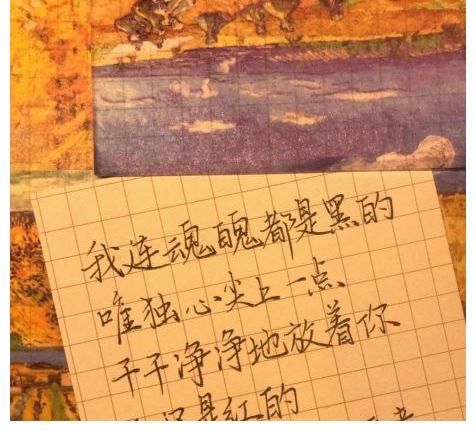 我连魂魄都是黑的
唯独心尖上一点
干干净净地放着你
是红的